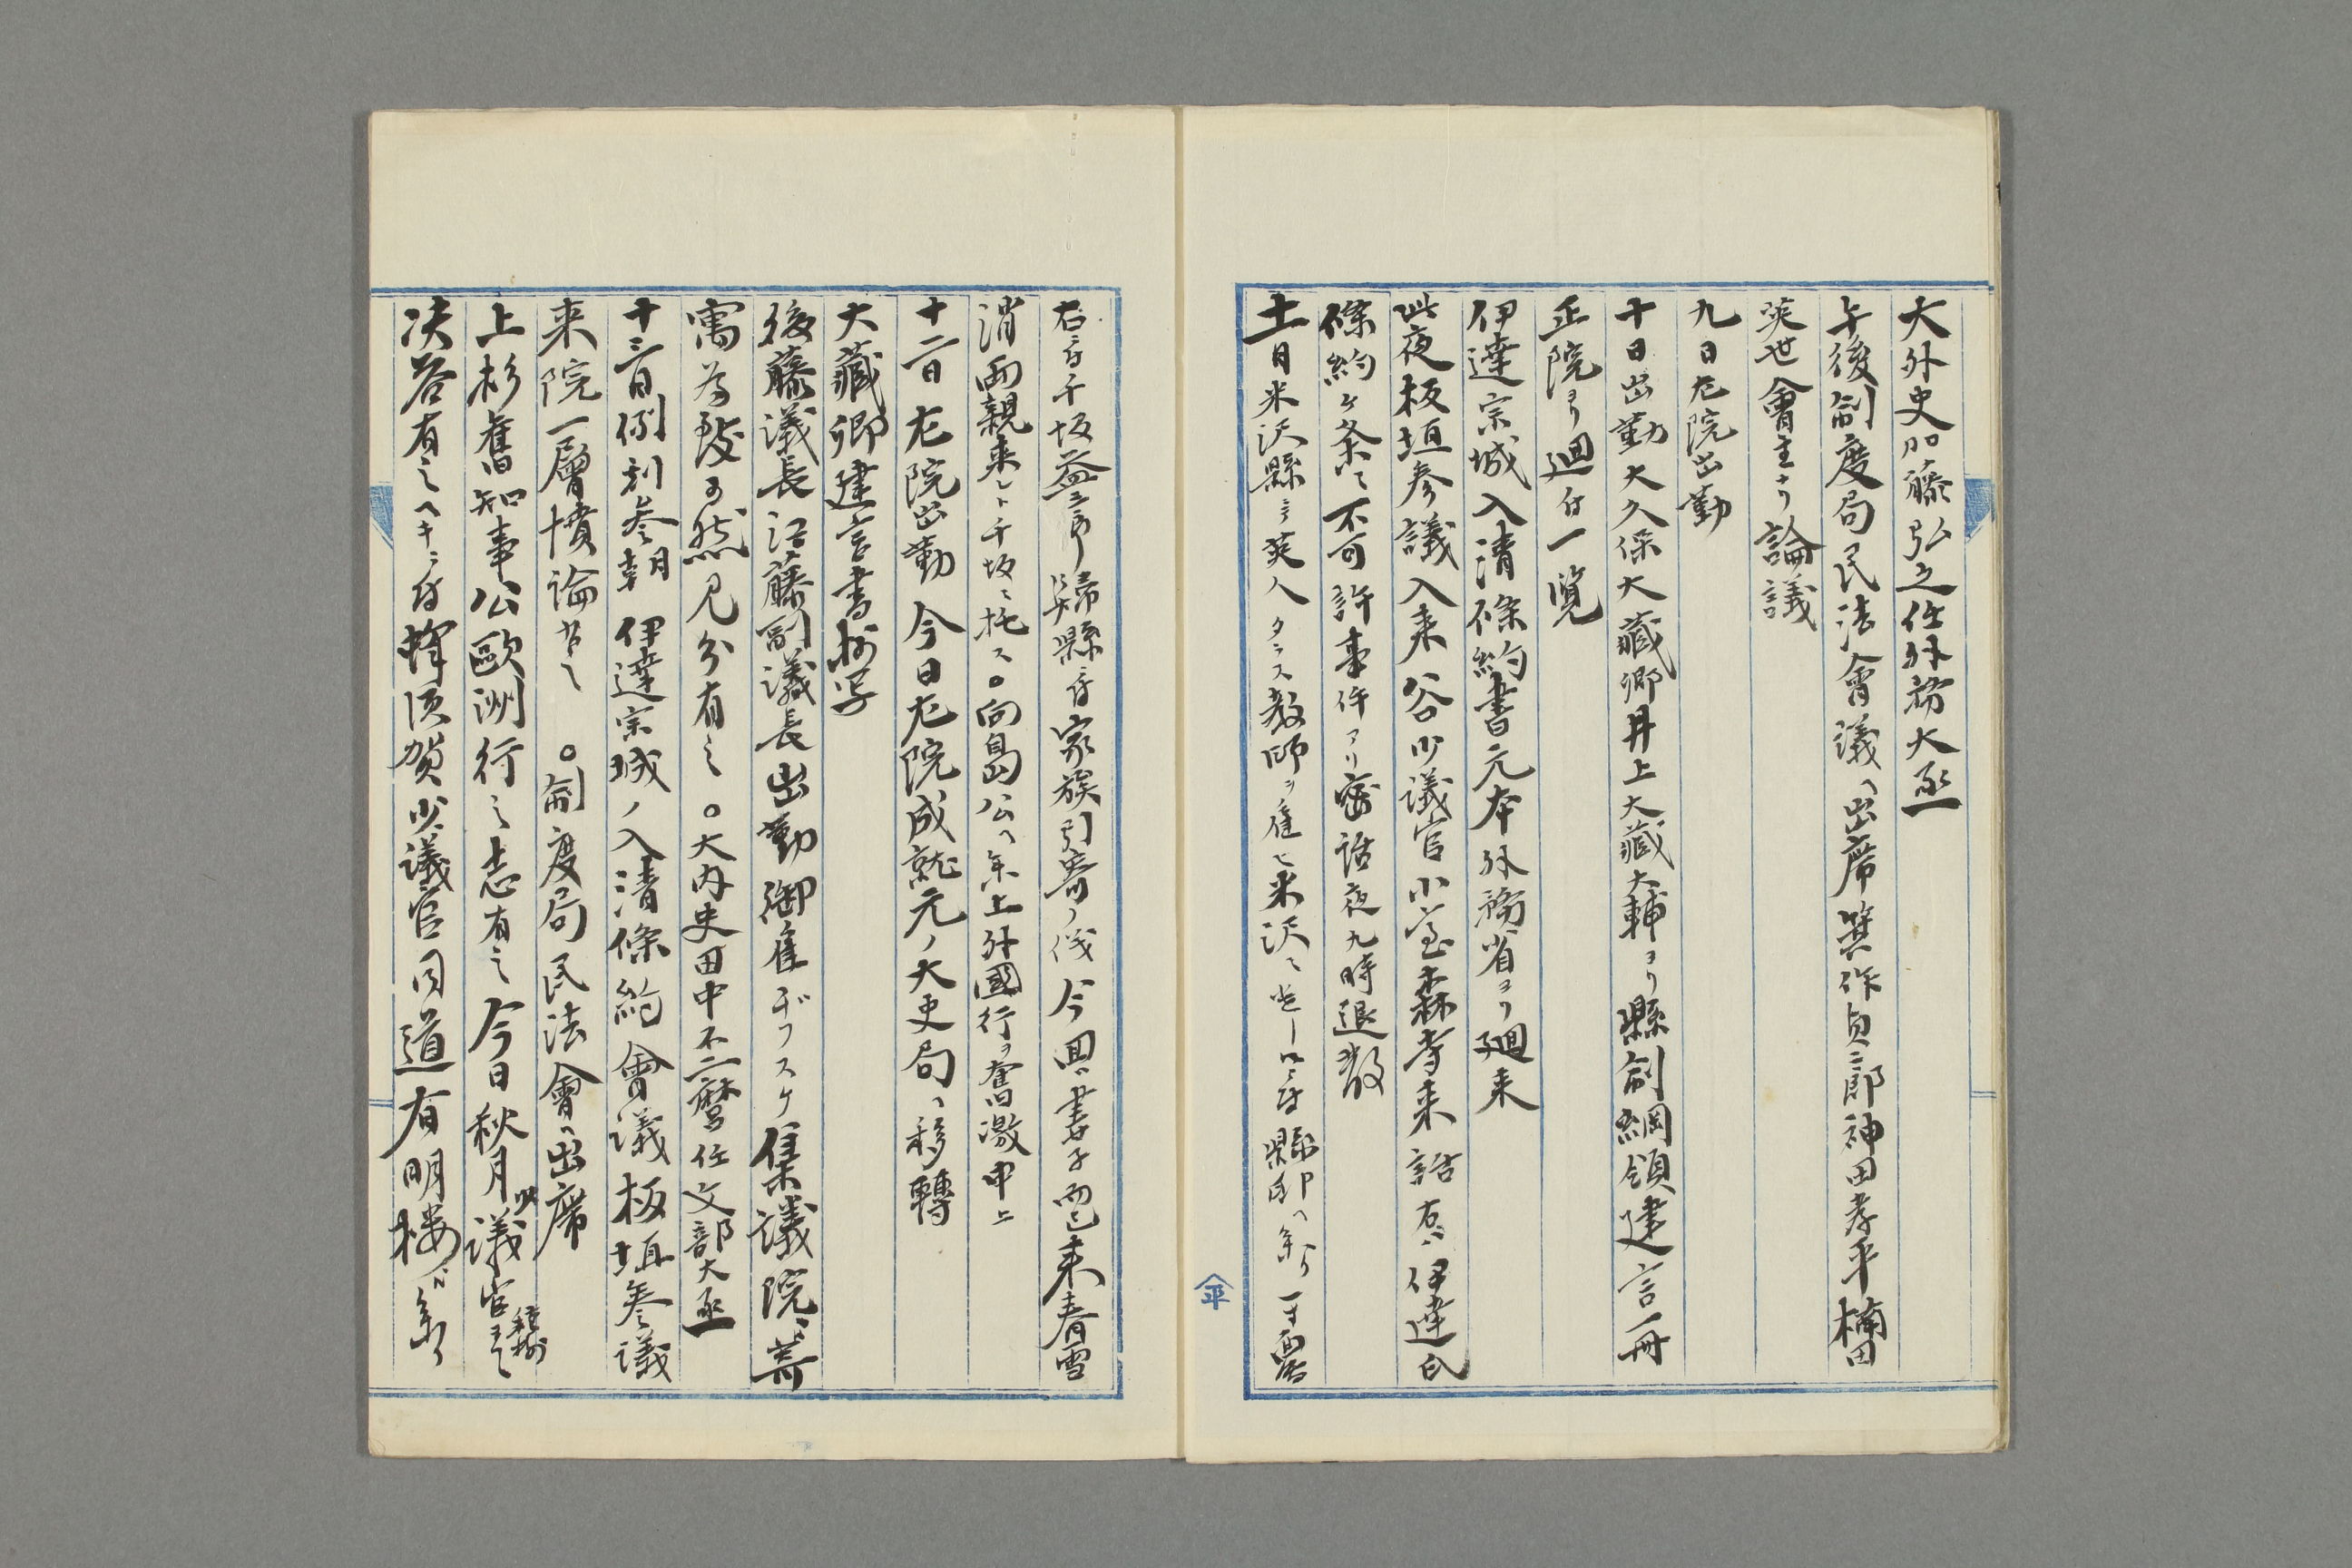 大外史加藤弘之任外務大丞
午後制度局民法會議へ出席箕作貞一郎神田孝平楠田
英世會主ナリ論議
九日左院出勤
十日出勤大久保大藏卿井上大藏大輔ヨリ縣制綱領建言一冊
正院ヨリ廻付一覧
伊達宗城入清條約書元本外務省ヨリ廻来
此夜板垣参議入来谷少議官小室森寺来話右ハ伊達氏
條約ヶ条ニ不可許事件アリ密話夜九時退散
十一日米沢縣ニ英人タラス教師ヲ雇ヒ米沢ニ縣邸へ参リ一寸面話
右ニ付千坂益三郎歸縣ニ付家族引寄ノ儀今回ハ妻子而已来春雪
消両親来レト千坂ニ托ス○向島公へ参上外國行ヲ奮激申上
十二日左院出勤今日左院成就元ノ大史局へ移轉
大藏卿建言書抄写
後藤議長江藤副議長出勤御雇ヂブスケ集議院ニ寄
寓為致可然見分有之○大内史田中不二麿任文部大丞
十三日例刻参朝伊達宗城ノ入清條約會議板垣参議
来院一層憤論ナセリ○制度局民法會へ出席
上杉舊知事公歐洲行之志有之今日秋月少議官種樹
決答有之ヘキニ付蜂須賀少議官同道有明楼ヘ参ル